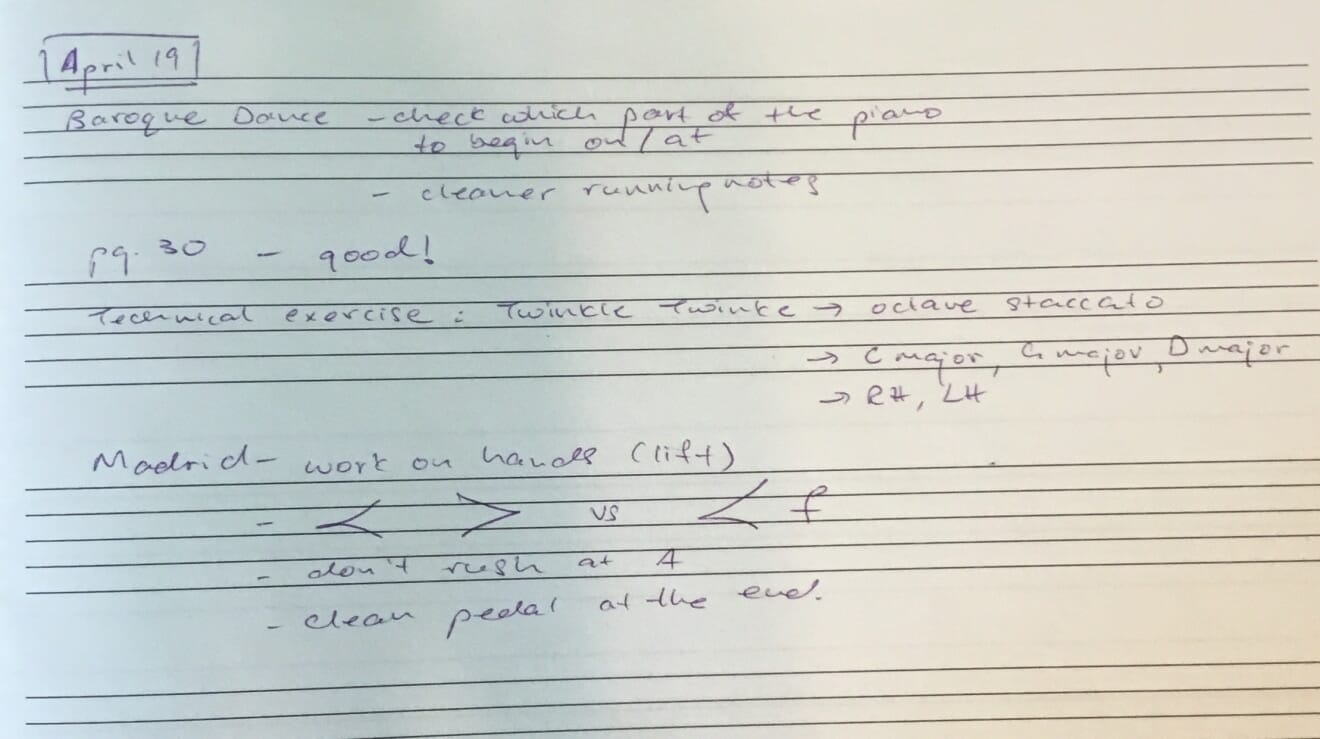 April 19
Baroque Dance - check which part of the piano
to begin on / at
- cleaner running notes
pg. 30 - good!
Technical exercise : Twinkle Twinke → octave staccato
→ C major, G major, D major
→ RH, LH
Madrid - work on hands (lift)
- < > vs < f
- don't rush at A
- clean pedal at the end.